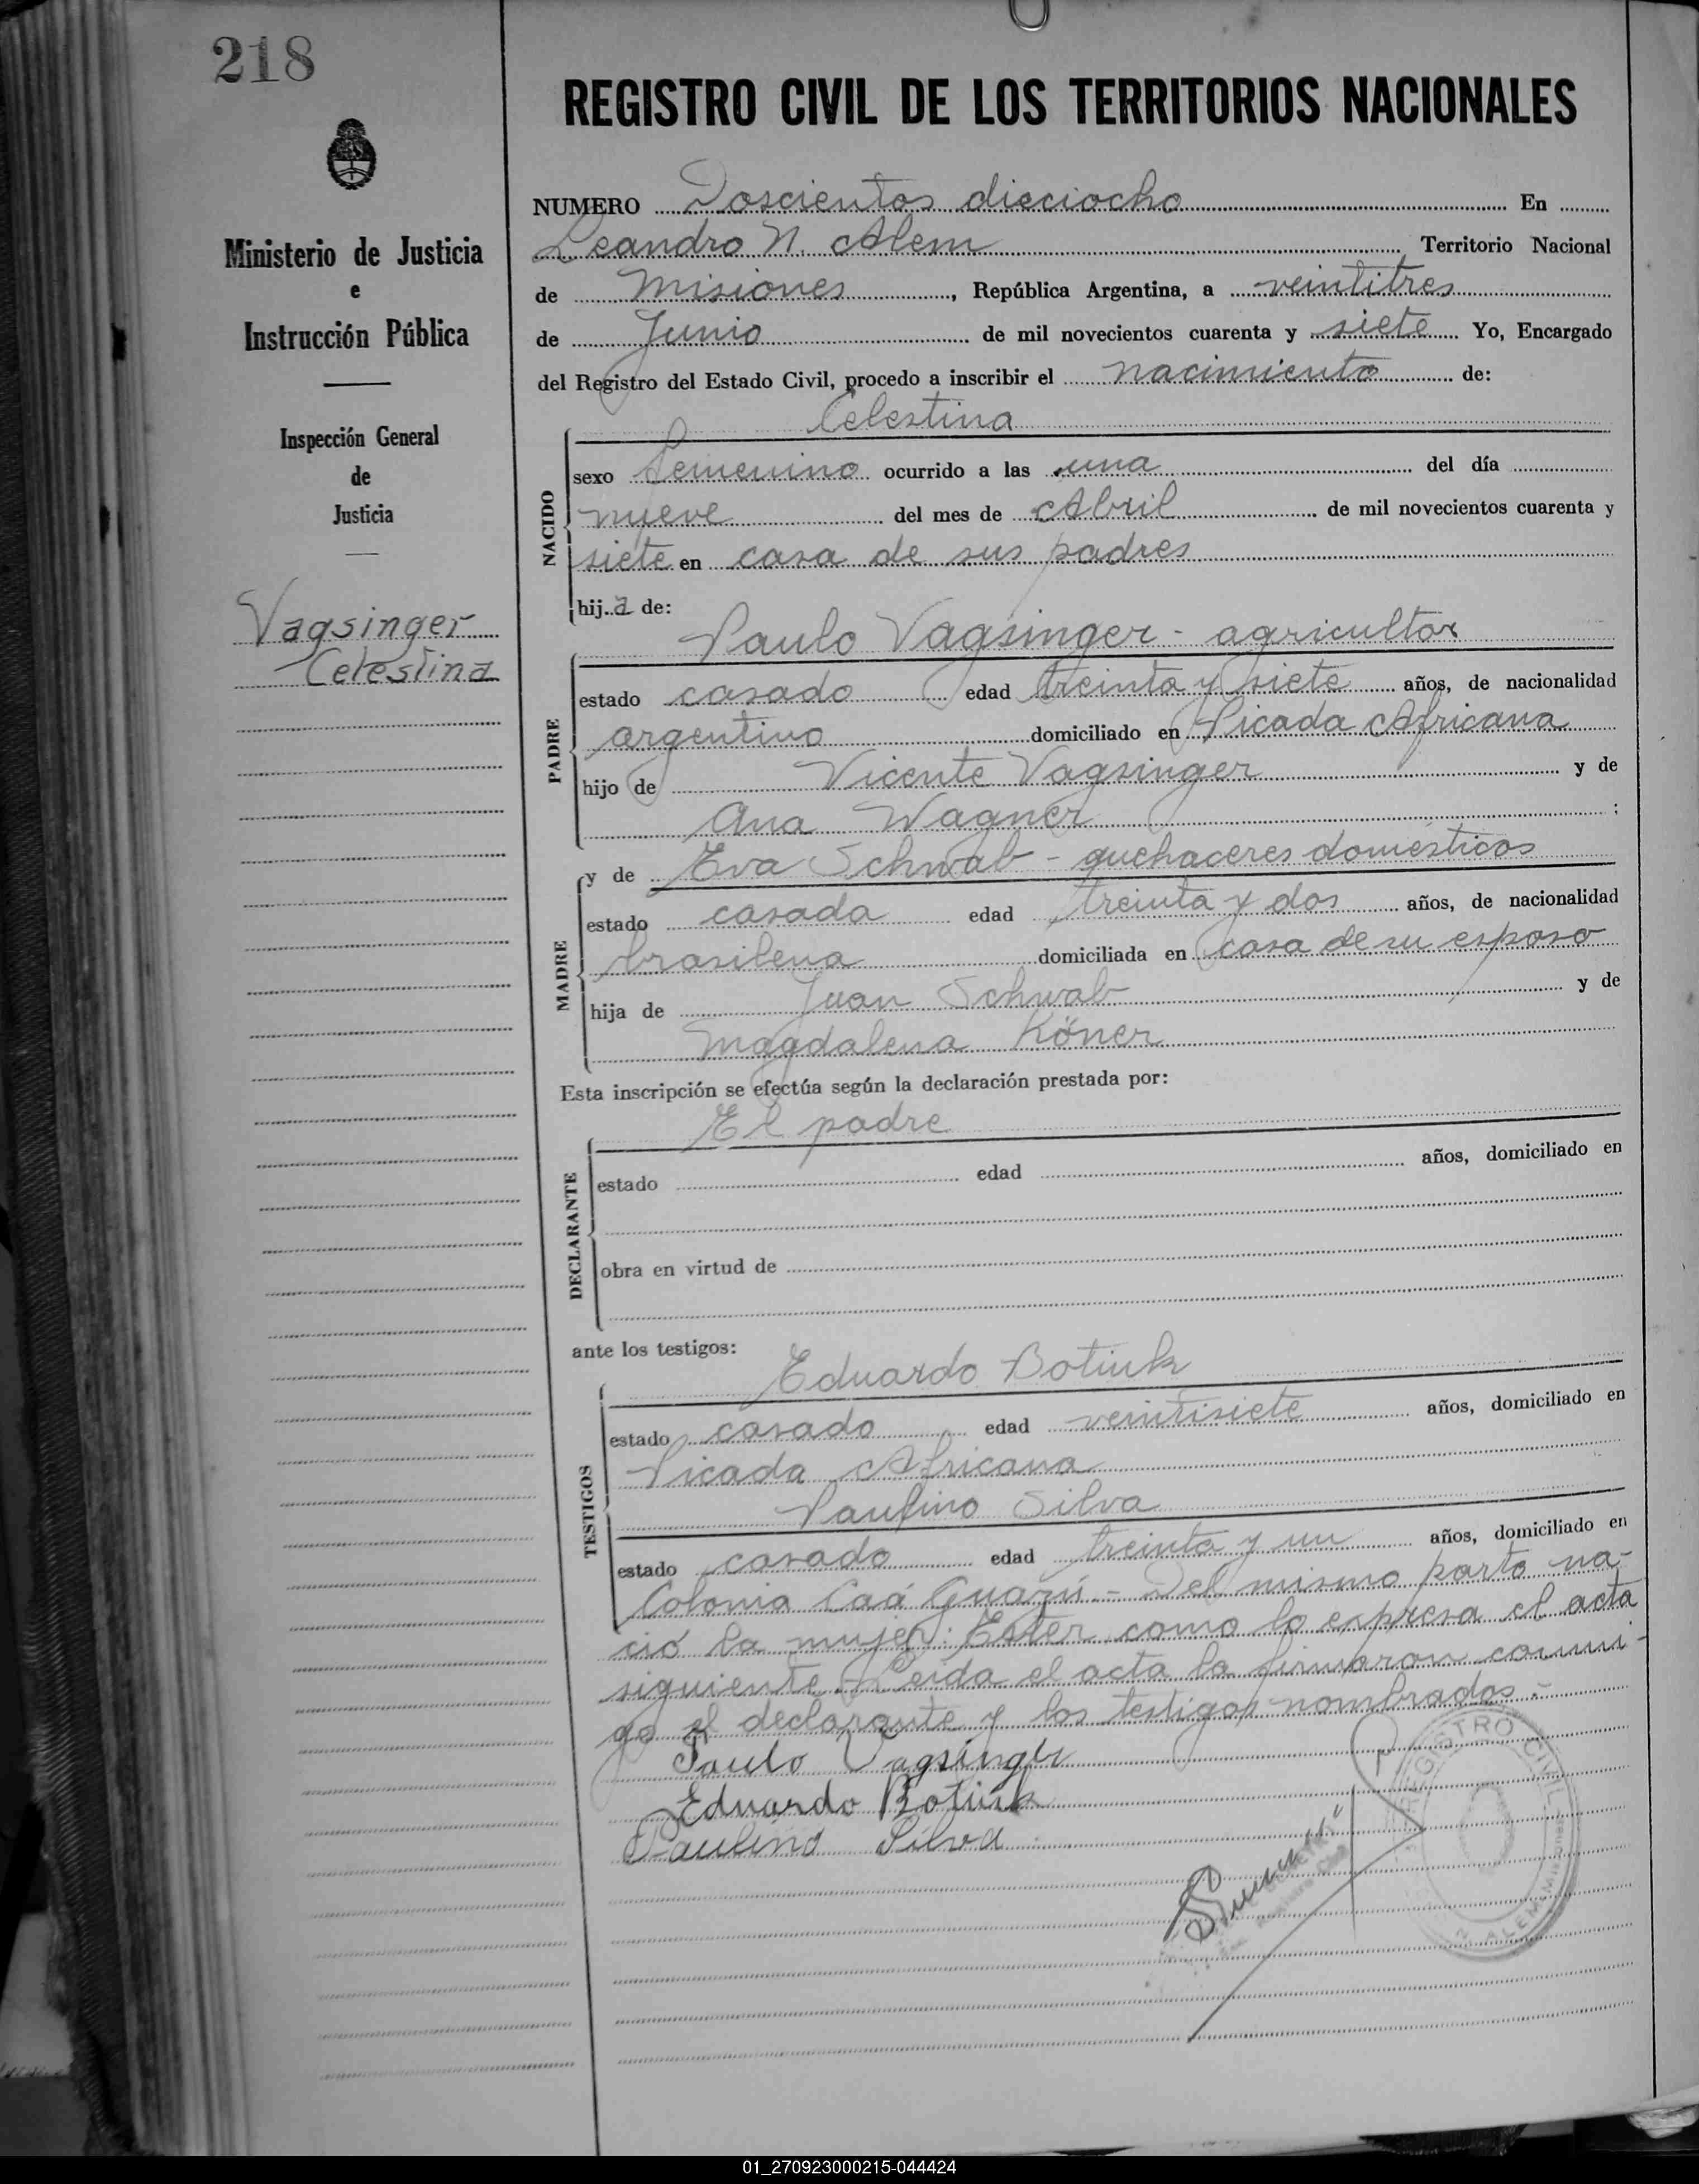 218
REGISTRO CIVIL DE LOS TERRITORIOS NACIONALES
Ministerio de Justicia
e
Instrucción Pública
Inspección General
de
Justicia
Vagsinger
Celestina
NUMERO Doscientos dieciocho En
Leandro N. Alem Territorio Nacional
de Misiones, República Argentina, a veintitres
de Junio de mil novecientos cuarenta y siete Yo, Encargado
del Registro del Estado Civil, procedo a inscribir el nacimiento de:
Celestina
NACIDO
sexo femenino ocurrido a las una del día
nueve del mes de Abril de mil novecientos cuarenta y
siete en casa de sus padres
hij a de:
Paulo Vagsinger - agricultor
PADRE
estado casado edad treinta y siete años, de nacionalidad
argentino domiciliado en Picada Africana
hijo de Vicente Vagsinger y de
Ana Wagner ;
y de Eva Schwab - quehaceres domésticos
MADRE
estado casada edad treinta y dos años, de nacionalidad
brasilena domiciliada en casa de su esposo
hija de Juan Schwab y de
Magdalena Köner
Esta inscripción se efectúa según la declaración prestada por:
El padre
DECLARANTE
estado edad años, domiciliado en
obra en virtud de
ante los testigos:
Eduardo Botiuk
TESTIGOS
estado casado edad veintisiete años, domiciliado en
Picada Africana
Paulino Silva
estado casado edad treinta y un años, domiciliado en
Colonia Caá Guazú - Del mismo parto na-
ció la mujer: Ester como lo expresa el acta
siguiente. Leída el acta la firmaron conmi-
go el declarante y los testigos nombrados.-
Paulo Vagsinger
Eduardo Botiuk
Paulino Silva
REGISTRO CIVIL
N. ALEM
01_270923000215-044424